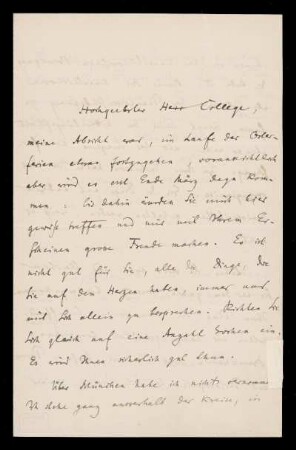 Hochgeehrter Herr College
meine Absicht war, im Laufe der Oster-
ferien etwas fortzugehen, voraussichtlich
aber wird es erst Ende März dazu kom-
men. Bis dahin würden Sie mich hier
gewiss treffen und mir mit Ihrem Er-
scheinen grosse Freude machen. Es ist
nicht gut für Sie, alle die Dinge, die
Sie auf dem Herzen haben, immer nur
mit Sich allein zu besprechen. Richten Sie
Sich gleich auf eine Anzahl Wochen ein.
Es wird Ihnen sicherlich gut thun.
Über München habe ich nichts vernommen
Ich stehe ganz ausserhalb der Kreise, in